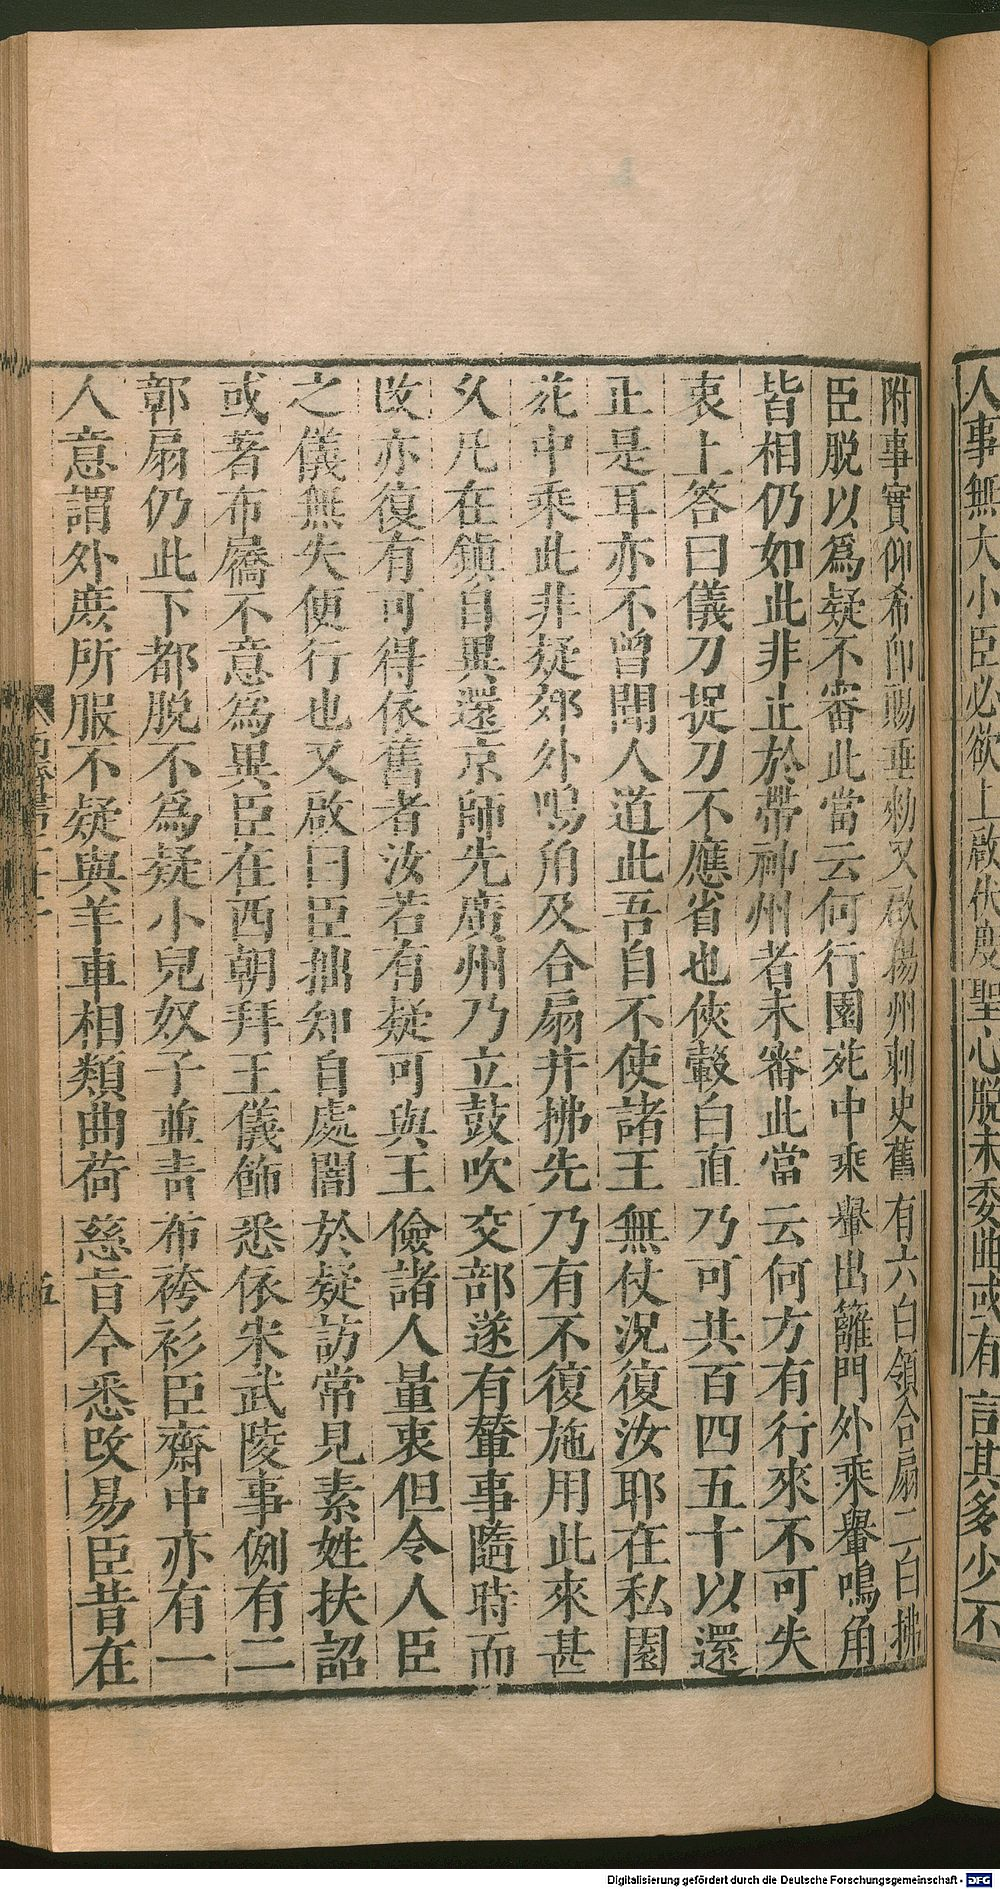 人事無大小臣必欲上啟伏度聖心脫未委曲或有言其多少不
附事實仰希即賜垂勑又啟揚州刺史舊有六白領合扇二白拂
臣脫以爲疑不審此當云何行園苑中乘轝出籬門外乘轝鳴角
皆相仍如此非止於帶神州者未審此當云何方有行來不可失
衷上答曰儀刀捉刀不應省也俠轂白直乃可共百四五十以還
正是耳亦不曾聞人道此吾自不使諸王無仗況復汝耶在私園
苑中乘此非疑郊外鳴角及合扇并拂先乃有不復施用此來甚
久凡在鎮自異還京師先廣州乃立鼓吹交部遂有輦事隨時而
改亦復有可得依舊者汝若有疑可與王儉諸人量衷但令人臣
之儀無失便行也又啟曰臣拙知自處闇於疑訪常見素姓扶詔
或著布屩不意爲異臣在西朝拜王儀飾悉依宋武陵事例有二
鄣扇仍此下都脫不爲疑小兒奴子並青布袴衫臣齋中亦有一
人意謂外庶所服不疑與羊車相類曲荷慈旨今悉改易臣昔在
五
Digitalisierung gefördert durch die Deutsche Forschungsgemeinschaft - DFG